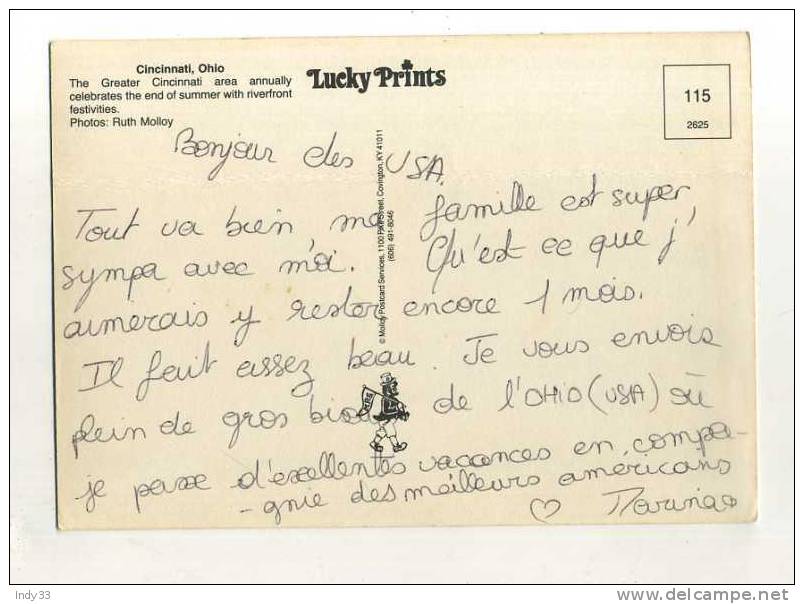 Cincinnati, Ohio
The Greater Cincinnati area annually
celebrates the end of summer with riverfront
festivities.
Photos: Ruth Molloy
Lucky Prints
115
2625
© Molloy Postcard Services, 1100 Street, Covington, KY 41011
(606) 491-8046
Bonjour des USA.
Tout va bien, ma famille est super
sympa avec moi. Qu'est ce que j'
aimerais y rester encore 1 mois.
Il fait assez beau. Je vous envois
plein de gros bisous de l'OHIO (USA) où
je passe d'excellentes vacances en compa-
-gnie des meilleurs américains
♡ Marina
Indy33
delcampe.net